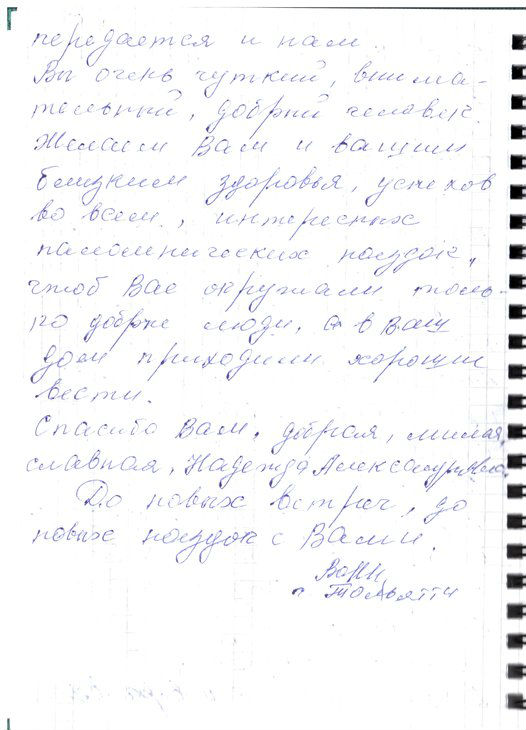 передается и нам.
Вы очень чуткий, внима-
тельный, добрый человек.
Желаем Вам и вашим
близким здоровья, успехов
во всем, интересных
паломнических поездок,
чтоб Вас окружали толь-
ко добрые люди, а в Ваш
дом приходили хорошие
вести.
Спасибо Вам, добрая, милая,
славная, Надежда Александровна.
До новых встреч, до
новых поездок с Вами.
г. Тольятти